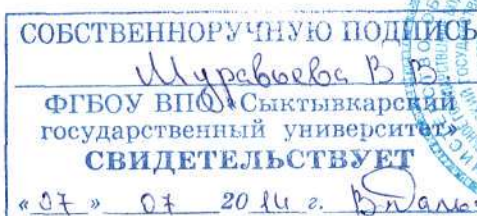 СОБСТВЕННОРУЧНУЮ ПОДПИСЬ
Муравьева В В
ФГБОУ ВПО «Сыктывкарский
государственный университет»
СВИДЕТЕЛЬСТВУЕТ
« 07 » 07 20 14 г.